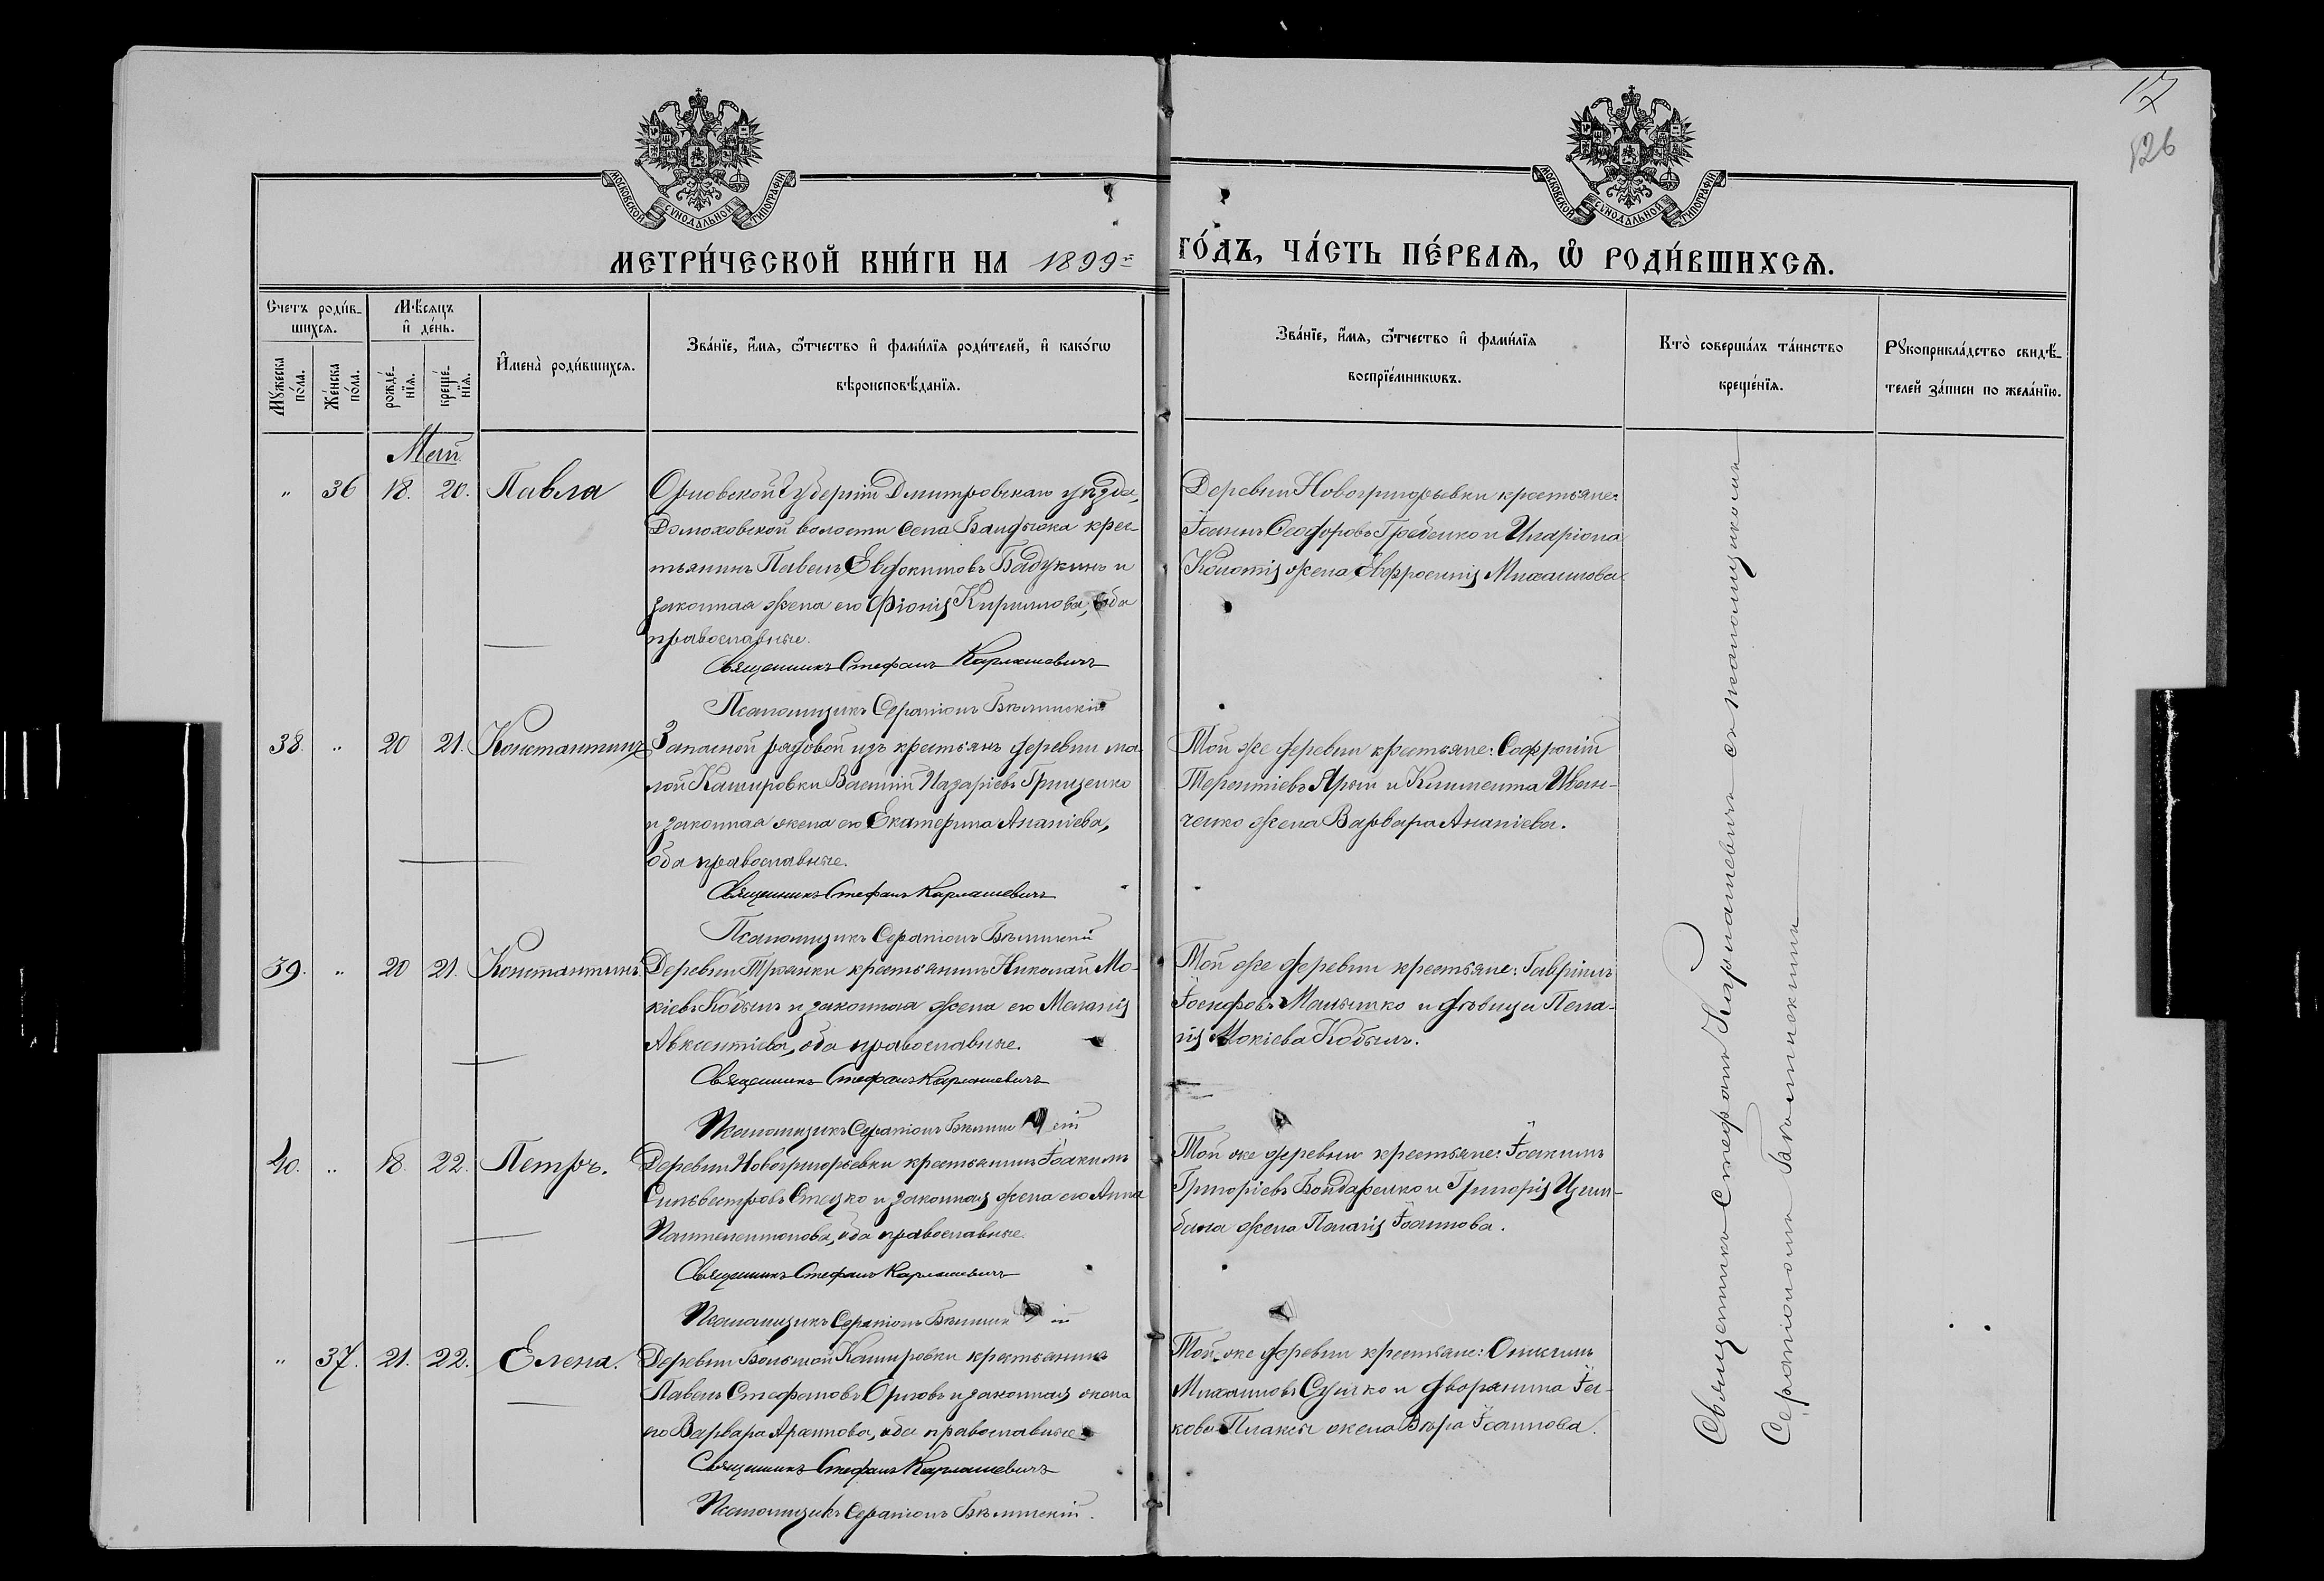 17
126
МОСКОВСКОЙ СѴНОДАЛЬНОЙ ТИПОГРАФІИ
МОСКОВСКОЙ СѴНОДАЛЬНОЙ ТИПОГРАФІИ
МЕТРИ́ЧЕСКОЙ КНИ́ГИ НА 1899й
ГО́ДЪ, ЧА́СТЬ ПЕ́РВАѦ, Ѡ҆ РОДИ́ВШИХСѦ.
Счетъ роди́в-
шихсѧ.
Мꙋ́жеска
по́ла.
Же́нска
по́ла.
Мѣ́сѧцъ
и҆ де́нь.
рожде́-
нїѧ.
креще́-
нїѧ.
И҆мена̀ роди́вшихсѧ.
Зва́нїе, и҆́мѧ, ѻ҆́тчество и҆ фами́лїѧ роди́телей, и҆ како́гѡ
вѣроисповѣ́данїѧ.
Зва́нїе, и҆́мѧ, ѻ҆́тчество и҆ фами́лїѧ
воспрїе́мникѡвъ.
Кто̀ соверша́лъ та́инство
креще́нїѧ.
Рꙋкоприкла́дство свидѣ́-
телей за́писи по жела́нїю.
Май
" 36 18. 20. Павла
Орловской Губерніи Дмитровскаго уѣзда,
Домоховской волости села Бандюка крес-
тьянинъ Павелъ Евдокимовъ Бадукинъ и
законная жена его Фіонія Кириллова, оба
православные.
Священникъ Стефанъ Карпашевичъ
Псаломщикъ Серапіонъ Бѣлинскій
Деревни Новогригорьевки крестьяне:
Іоаннъ Ѳеодоровъ Гребенко и Иларіона
Колотія жена Евфросинія Михаилова.
38. " 20 21. Константинъ
Запасной рядовой изъ крестьянъ деревни ма-
лой Кашировки Василій Назаріевъ Грищенко
и законная жена его Екатерина Ананіева,
оба православные.
Священникъ Стефанъ Карпашевичъ
Псаломщикъ Серапіонъ Бѣлинскій
Той же деревни крестьяне: Софроній
Терентіевъ Ярый и Климента Иван-
ченко жена Варвара Ананіева.
39. " 20 21. Константинъ.
Деревни Трянки крестьянинъ Николай Мо-
кіевъ Кобылъ и законная жена его Меланія
Авксентіева, оба православные.
Священникъ Стефанъ Карпашевичъ
Псаломщикъ Серапіонъ Бѣлин кій
Той же деревни крестьяне: Гавріилъ
Іосифовъ Малышко и дѣвица Пела-
гія Мокіева Кобылъ.
40. " 18. 22. Петръ.
Деревни Новогригорьевки крестьянинъ Іоакимъ
Сильвестровъ Стецко и законная жена его Анна
Пантелеимонова, оба православные.
Священникъ Стефанъ Карпашевичъ
Псаломщикъ Серапіонъ Бѣлинск ій
Той же деревни крестьяне: Іоакимъ
Григоріевъ Бондаренко и Григорія Цим-
бала жена Пелагія Іоаннова.
" 37. 21. 22. Елена.
Деревни Большой Кашировки крестьянинъ
Павелъ Стефановъ Орловъ и законная жена
его Варвара Архипова, оба православные.
Священникъ Стефанъ Карпашевичъ
Псаломщикъ Серапіонъ Бѣлинскій.
Той же деревни крестьяне: Онисимъ
Михаиловъ Сушко и дворянина Іа-
кова Плаксы жена Вѣра Іоаннова.
Священникъ Стефанъ Карпашевичъ съ псаломщикомъ
Серапіономъ Бѣлинскимъ